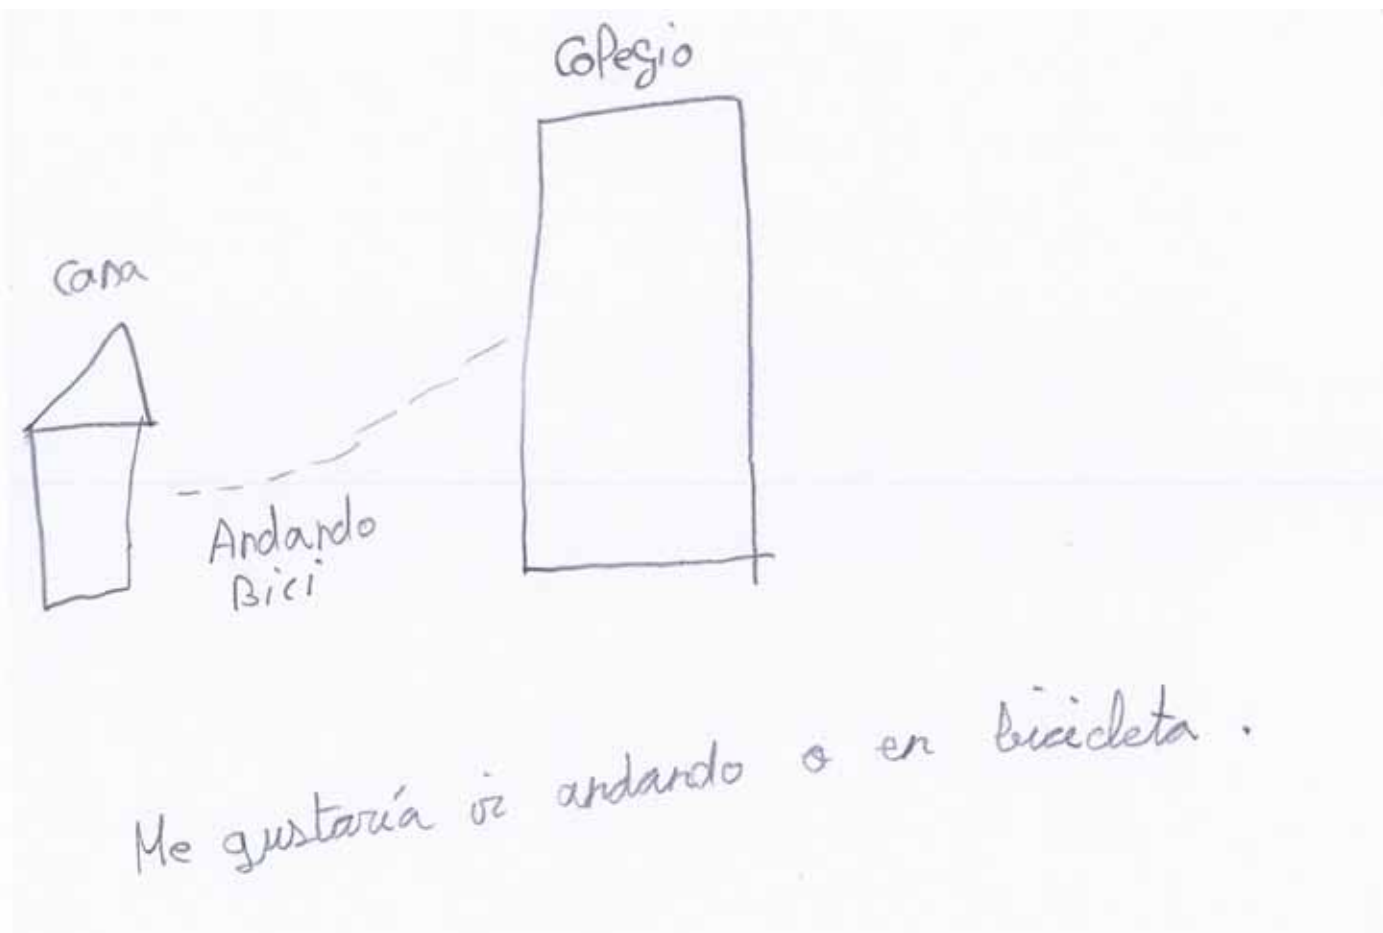 Colegio
Casa
Andando
Bici
Me gustaría ir andando o en bicicleta.